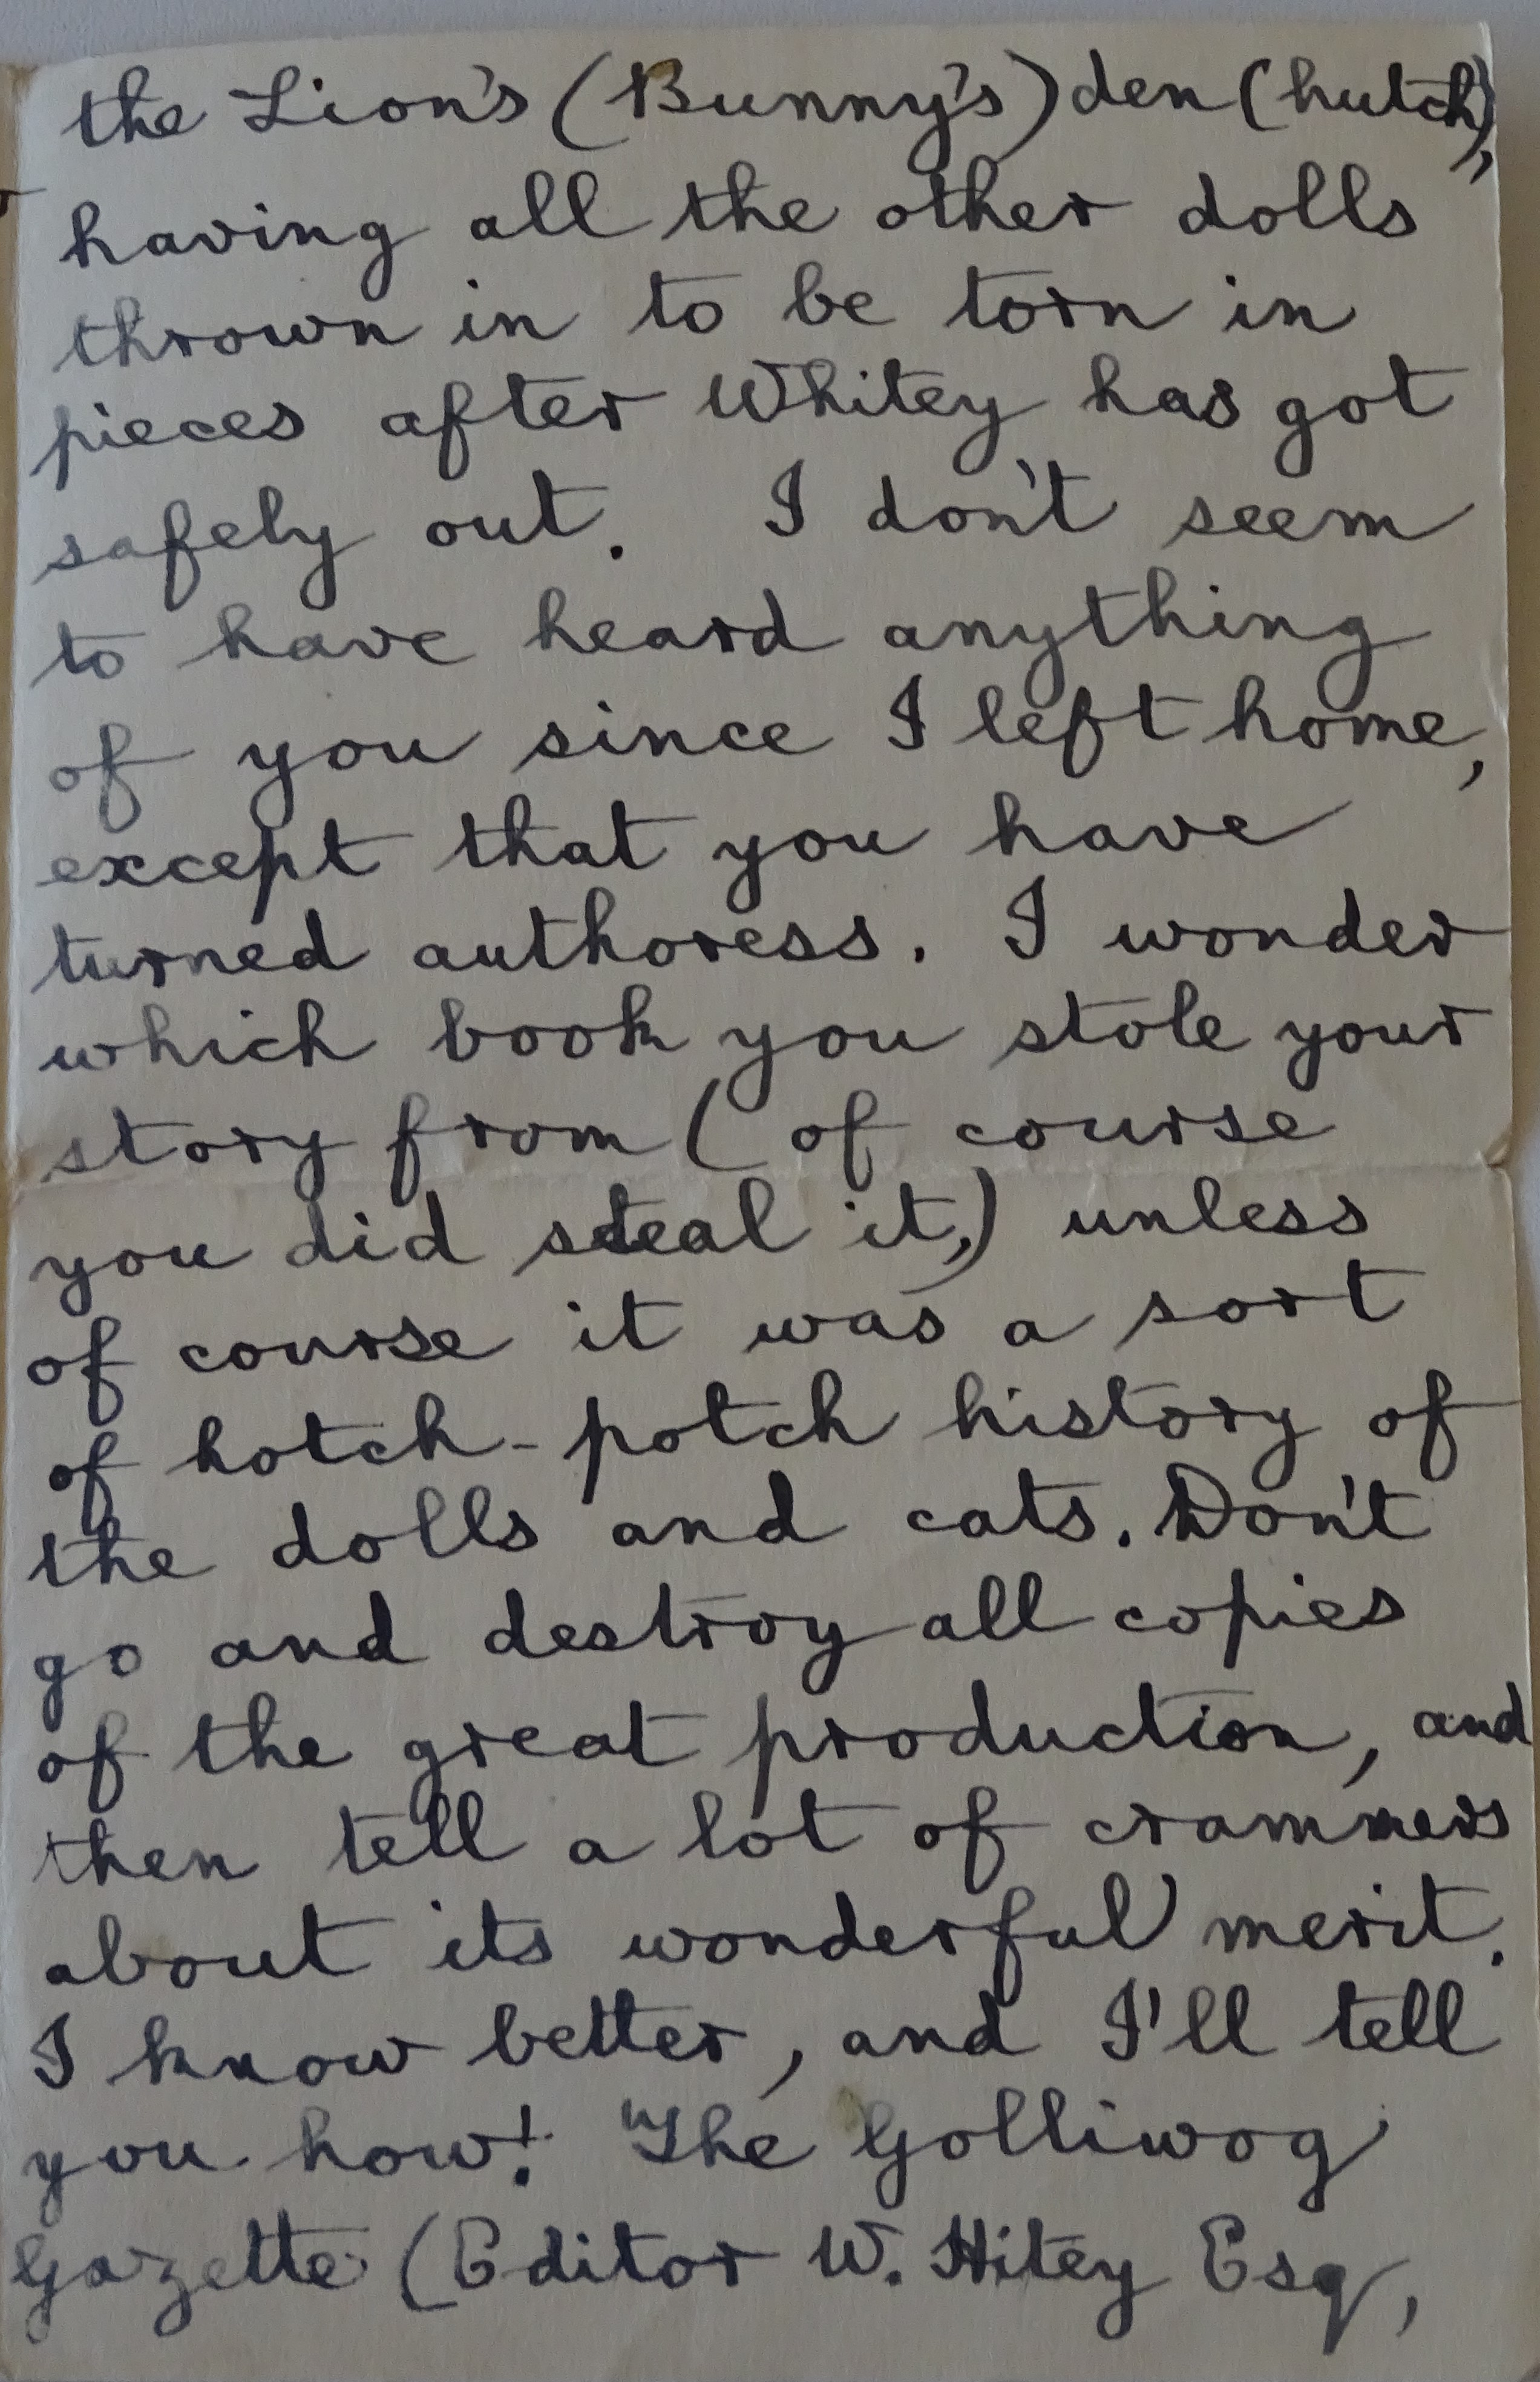 the Lion's (Bunny's) den (hutch),
having all the other dolls
thrown in to be torn in
pieces after Whitey has got
safely out. I don't seem
to have heard anything
of you since I left home,
except that you have
turned authoress. I wonder
which book you stole your
story from (of course
you did steal it,) unless
of course it was a sort
of hotch-potch history of
the dolls and cats. Don't
go and destroy all copies
of the great production, and
then tell a lot of crammers
about its wonderful merit.
I know better, and I'll tell
you how! "The Golliwog
Gazette (Editor W. Hitey Esq,